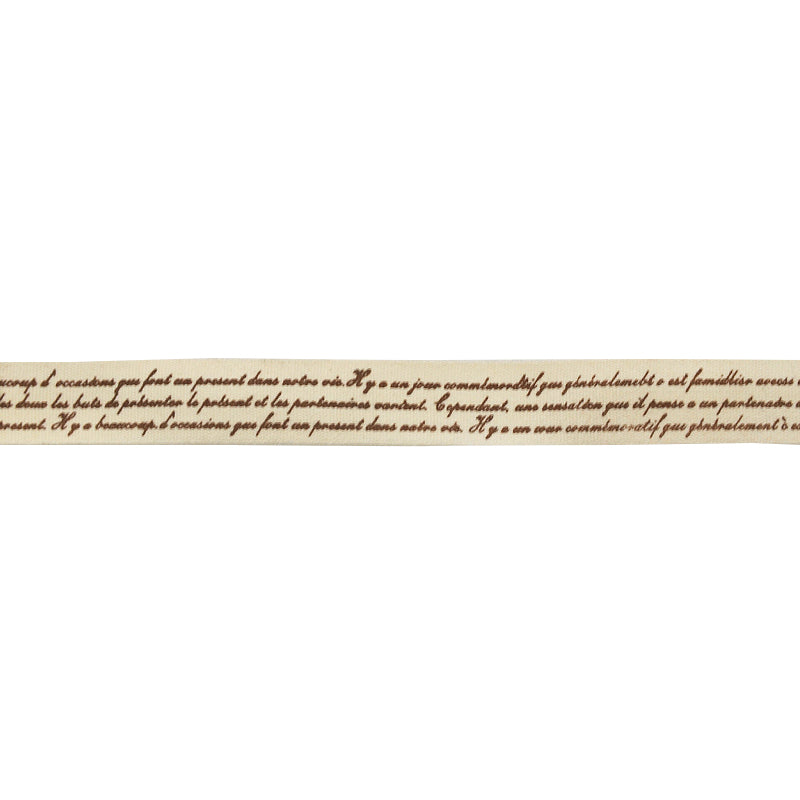 ucoup d'occasions que font un present dans notre vie. Il y a un jour commémoratif que généralement o est famidtise
des deux les buts de présenter le présent et les partenaires varient. Cependant, une sensation que il pense a un partenaire
present. Il y a beaucoup d'occasions que font un present dans notre vie. Il y a un commémoratif que généralement à